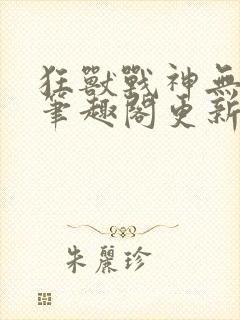 狂獸戰神無
筆趣閣更新
朱麗珍